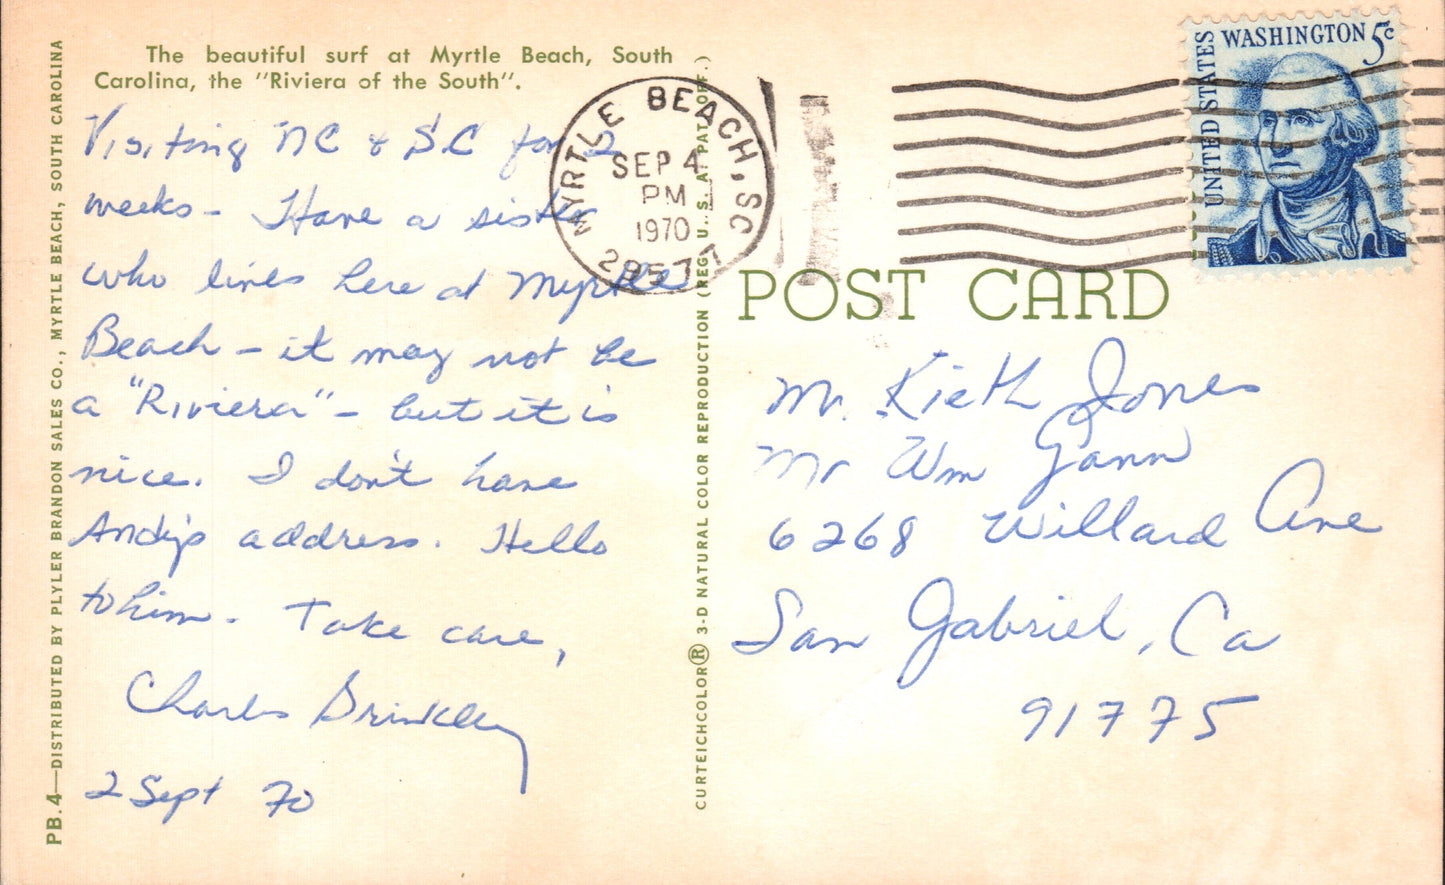 The beautiful surf at Myrtle Beach, South
Carolina, the "Riviera of the South".
Visiting NC & S.C for 2
weeks - Have a sister
who lives here at Myrtle
Beach - it may not be
a "Riviera" - but it is
nice. I don't have
Andy's address. Hello
to him. Take care,
Charles Brinkley
2 Sept 70
PB.4—DISTRIBUTED BY PLYLER BRANDON SALES CO., MYRTLE BEACH, SOUTH CAROLINA
CURTEICHCOLOR® 3-D NATURAL COLOR REPRODUCTION (REG. U. S. A. PAT. OFF.)
MYRTLE BEACH, SC
SEP 4
PM
1970
29577
UNITED STATES
WASHINGTON 5c
POST CARD
Mr. Kieth Jones
Mr Wm Gann
6268 Willard Ave
San Gabriel, Ca
91775